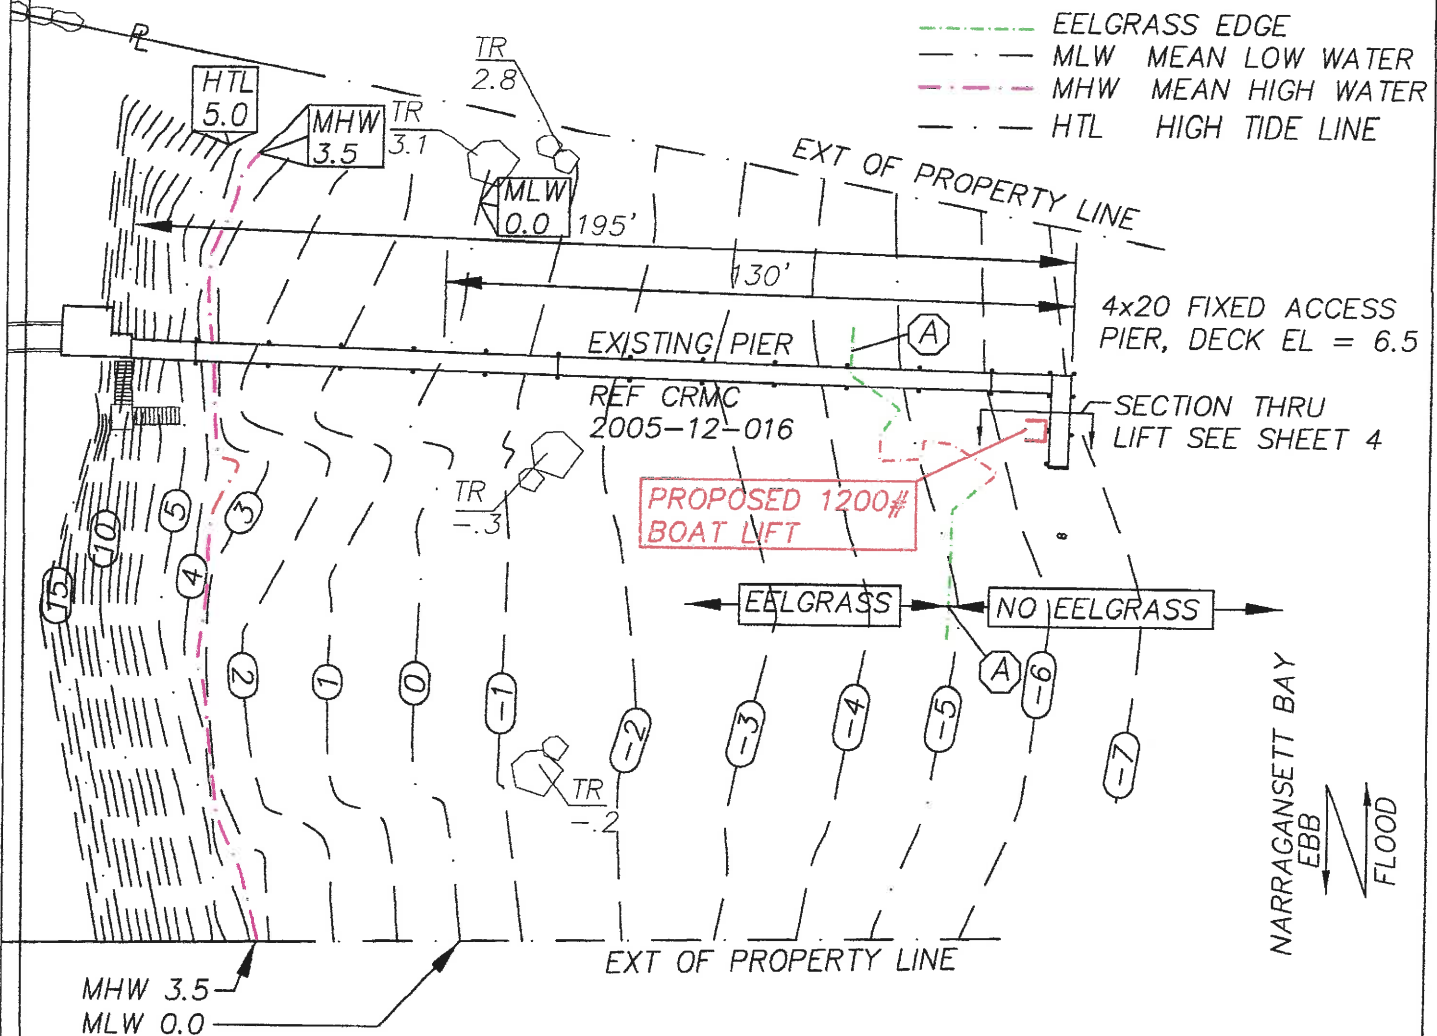 EELGRASS EDGE
MLW MEAN LOW WATER
MHW MEAN HIGH WATER
HTL HIGH TIDE LINE
PL
TR
2.8
HTL
5.0
MHW
3.5
TR
3.1
MLW
0.0
EXT OF PROPERTY LINE
195'
130'
4x20 FIXED ACCESS
PIER, DECK EL = 6.5
EXISTING PIER
A
REF CRMC
2005-12-016
SECTION THRU
LIFT SEE SHEET 4
TR
-.3
PROPOSED 1200#
BOAT LIFT
8
15
10
5
4
3
EELGRASS
NO EELGRASS
A
2
1
0
-1
-2
-3
-4
-5
-6
-7
TR
-.2
NARRAGANSETT BAY
EBB
FLOOD
EXT OF PROPERTY LINE
MHW 3.5
MLW 0.0